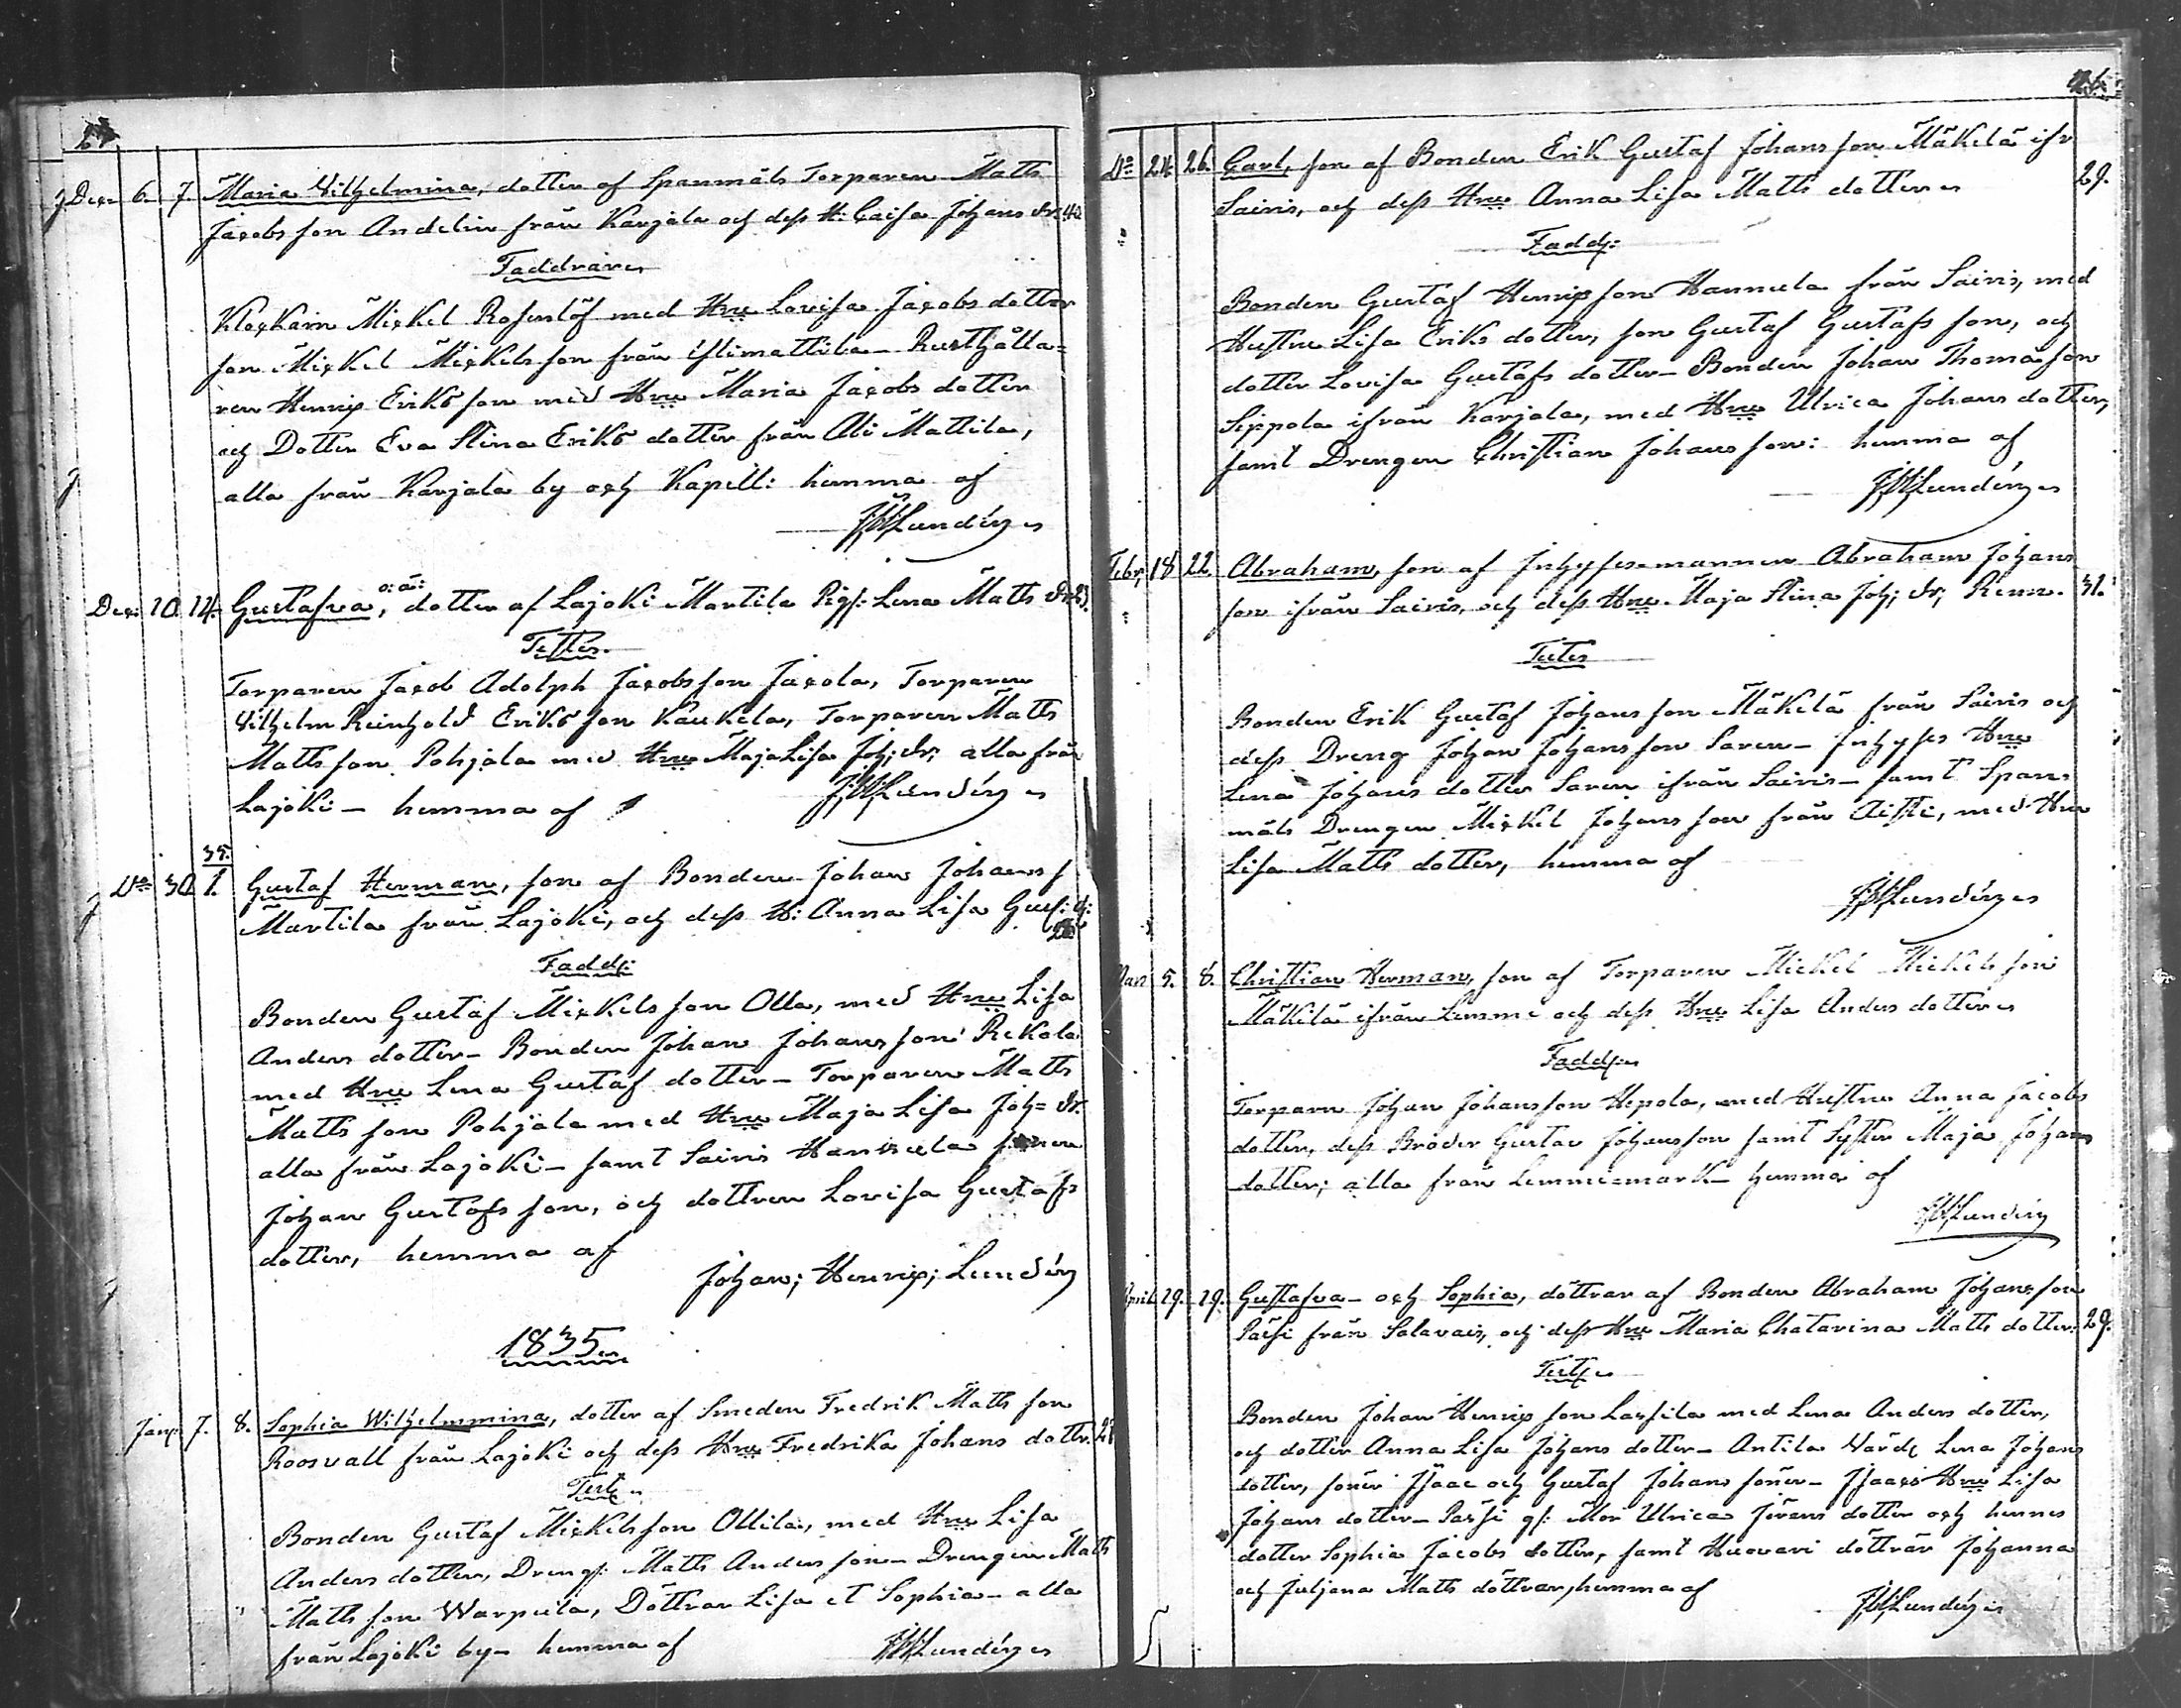 Dec: 6. 7. Maria Vilhelmina, dotter af Spanmåls Torparen Matts
Jacobsson Andelin från Karjala och dess H: Caisa Johans dr: 42
Faddrar
Klockarn Mickel Rosenlöf med Hru Lovisa Jacobs dotter
son Mickel Mickelsson från Ylimattila – Rusthålla=
ren Henric Eriksson med Hru Maria Jacobs dotter
och Dotter Eva Stina Eriks dotter från Ali Mattila,
alla från Karjala by och Kapell: hemma af
JHLundén
Dec: 10. 14. Gustafva, o: ä: dotter af Lajoki Martila Pig: Lena Matts dr
Testes
Torparen Jacob Adolph Jacobsson Jacola, Torparen
Vilhelm Reinhold Eriksson Kaukela, Torparen Matts
Mattsson Pohjala med Hru Maja Lisa Joh: dr; alla från
Lajoki – hemma af JHLundén
Do 30 35. 1. Gustaf Herman, son af Bonden Johan Johans s
Martila från Lajoki, och dess H: Anna Lisa Gust: d:
Fadd:
Bonden Gustaf Mickelsson Olla, med Hru Lisa
Anders dotter – Bonden Johan Johansson Rekola
med Hru Lena Gustaf dotter – Torparen Matts
Mattsson Pohjala med Hru Maja Lisa Joh= dr.
alla från Lajoki – samt Sairis Hannula sonen
Johan Gustafsson, och dottren Lovisa Gustafs
dotter, hemma af
Johan; Henric; Lundén
1835
Janu: 7. 8. Sophia Wilhelmmina, dotter af Smeden Fredrik Matts son
Roosvall från Lajoki och dess Hru Fredrika Johans dotter.
Test
Bonden Gustaf Mickelsson Ollila, med Hru Lisa
Anders dotter, Dreng: Matts Andersson – Drengen Matts
Mattsson Warpula, Döttrar Lisa et Sophia – alla
från Lajoki by – hemma af JHLundén
Do 24 26. Carl, son af Bonden Erik Gustaf Johansson Mäkelä ifr
Sairis, och dess Hru Anna Lisa Matts dotter 29.
Fadd:
Bonden Gustaf Henricsson Hannula från Sairis, med
Hustru Lisa Eriks dotter, son Gustaf Gustafs son, och
dotter Lovisa Gustafs dotter – Bonden Johan Thomasson
Sippola ifrån Karjala, med Hru Ulrica Johans dotter,
samt Drengen Christian Johansson: hemma af
JHLundén
Febr; 18 22. Abraham, son af Inhysesmannen Abraham Johans
son ifrån Sairis, och dess Hru Maja Stina Joh; dr; 31.
Testes
Bonden Erik Gustaf Johansson Mäkelä från Sairis och
dess Dreng Johan Johansson Saren – Inhyses Hru
Lena Johans dotter Saren ifrån Sairis – samt Span
måls Drengen Mickel Johansson från Aisti, med Hru
Lisa Matts dotter, hemma af
JHLundén
Mars 5. 8. Christian Herman, son af Torparen Mickel Mickelsson
Mäkilä ifrån Lemmi och dess Hru Lisa Anders dotter
Fadd:
Torparn Johan Johansson Hepola, med Hustru Anna Jacobs
dotter, dess Broder Gustav Johansson samt Syster Maja Johans
dotter; alla från Lemmismark – hemma af
JHLundén
April 19. 19. Gustafva – och Sophia, döttrar af Bonden Abraham Johansson
Passi från Salavais, och dess Hru Maria Chatarina Matts dotter: 29.
Test
Bonden Johan Henricsson Lassila med Lena Anders dotter,
och dotter Anna Lisa Johans dotter – Antila Värd: Lena Johans
dotter, söner Isaac och Gustaf Johans söner – Isaacs Hru Lisa
Johans dotter – Passi g: Mor Ulrica Jörans dotter och hennes
dotter Sophia Jacobs dotter, samt Huovari döttrar Johanna
och Juljana Matts döttrar, hemma af JHLundén